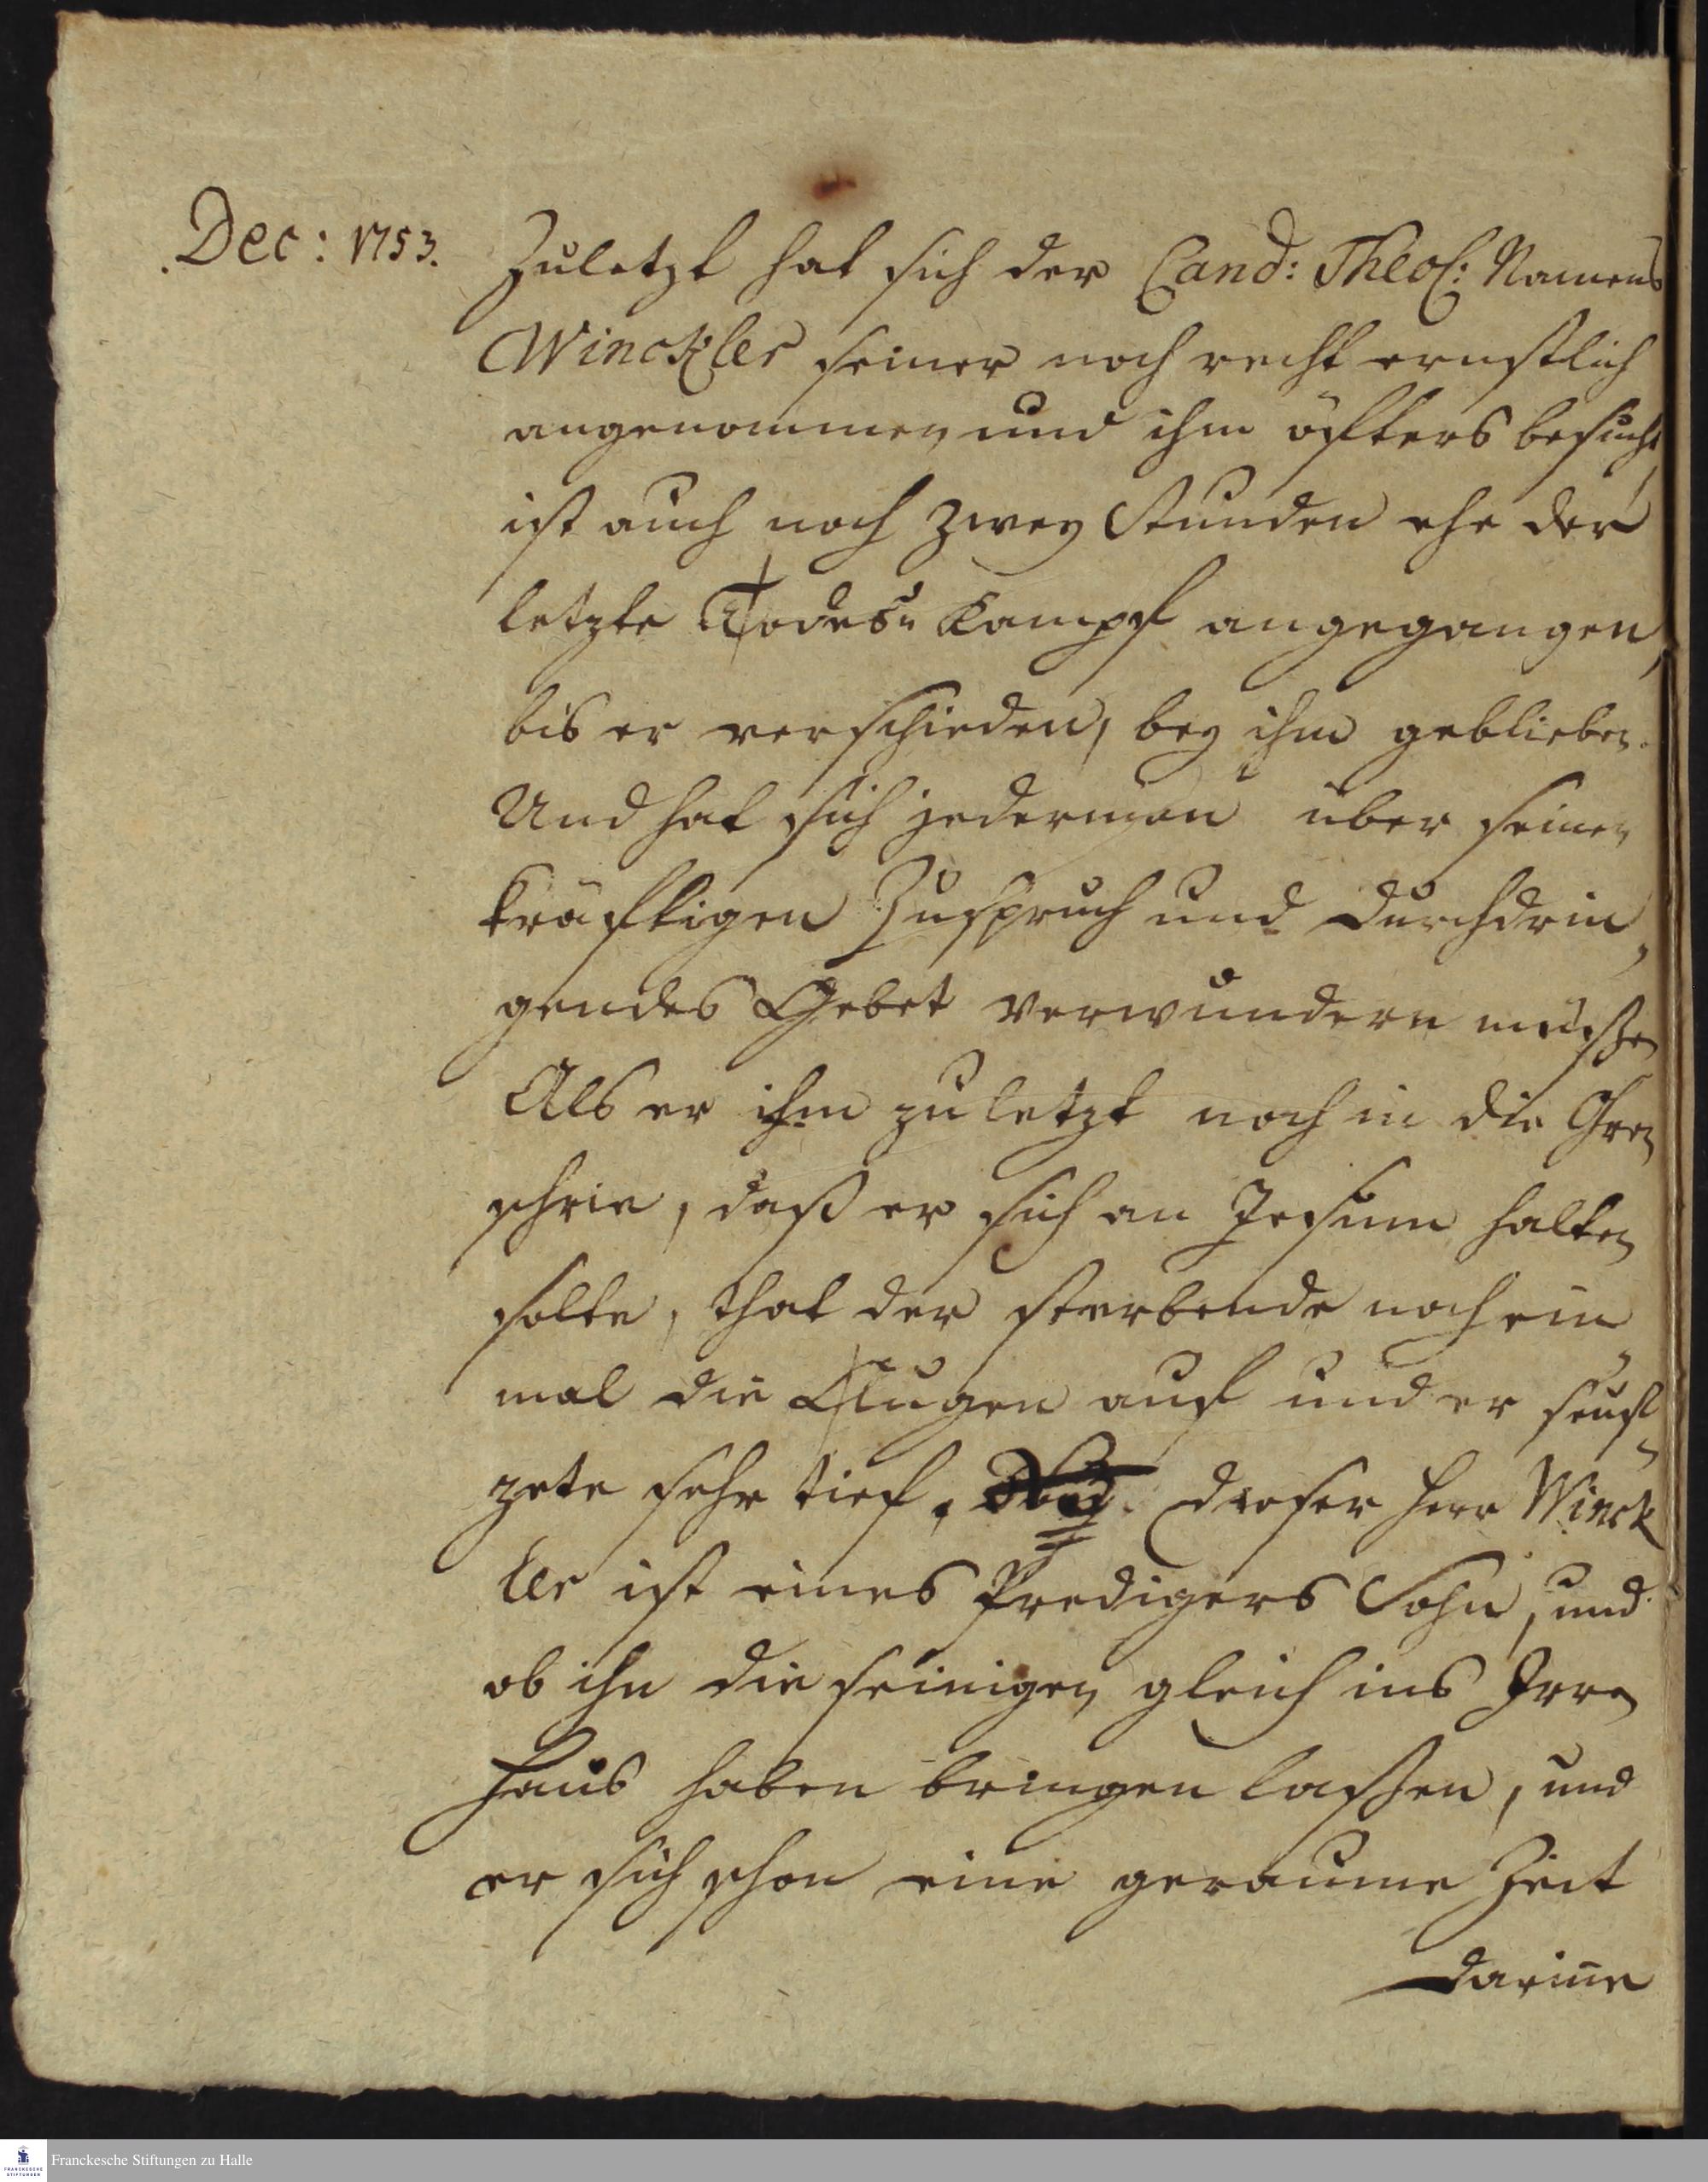 Dec: 1753.
Zuletzt hat sich der Cand: Theol: Namens
Winckler seiner noch recht ernstlich
angenommen und ihm öfters besucht,
ist auch noch zwey Stunden ehe der
letzte Todes- Kampf angegangen,
bis er verschieden, bey ihm geblieben.
Und hat sich jederman über seinen
kräfftigen Zuspruch und durchdrin-
gendes Gebet verwundern müssen
Als er ihm zuletzt noch in die Ohren
schrie, daß er sich an Jesum halten
solte, that der sterbende noch ein-
mal die Augen auf und er seuf-
zete sehr tief. dieser Herr Winck
ler ist eines Predigers Sohn, und
ob ihn die seinigen gleich ins Irren
Haus haben bringen lassen, und
er sich schon eine geraume Zeit
darinne
Franckesche Stiftungen zu Halle
FRANCKESCHE
STIFTUNGEN